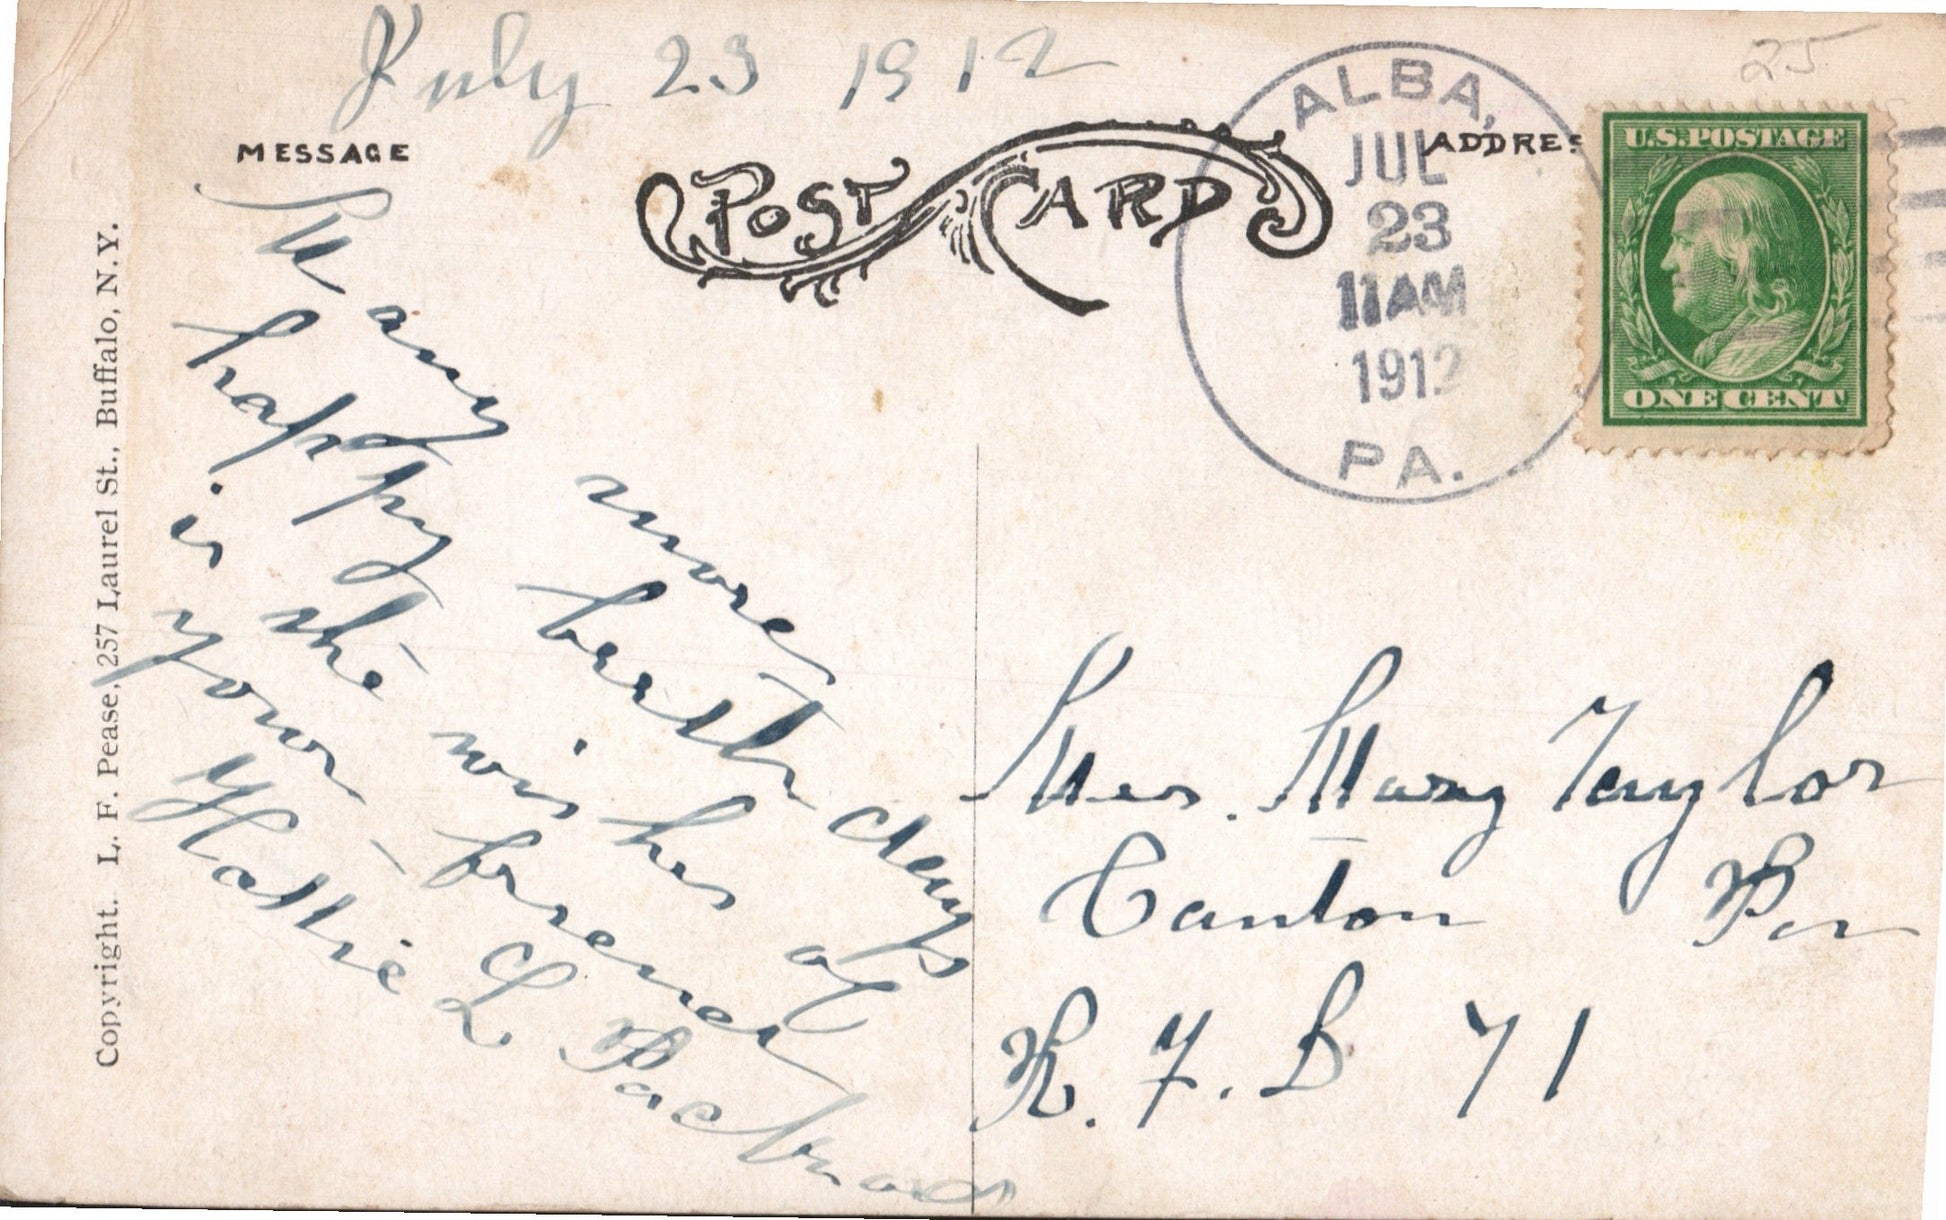 July 23 1912
25
MESSAGE
POST CARD
ADDRES
ALBA,
JUL
23
11 AM
1912
PA.
U.S. POSTAGE
ONE CENT
Many more
happy birth days
is the wishes of
your friend
Hattie L
Copyright. L. F. Pease, 257 Laurel St., Buffalo, N.Y.
Mrs. Mary Taylor
Canton Pa
R. F. D 71